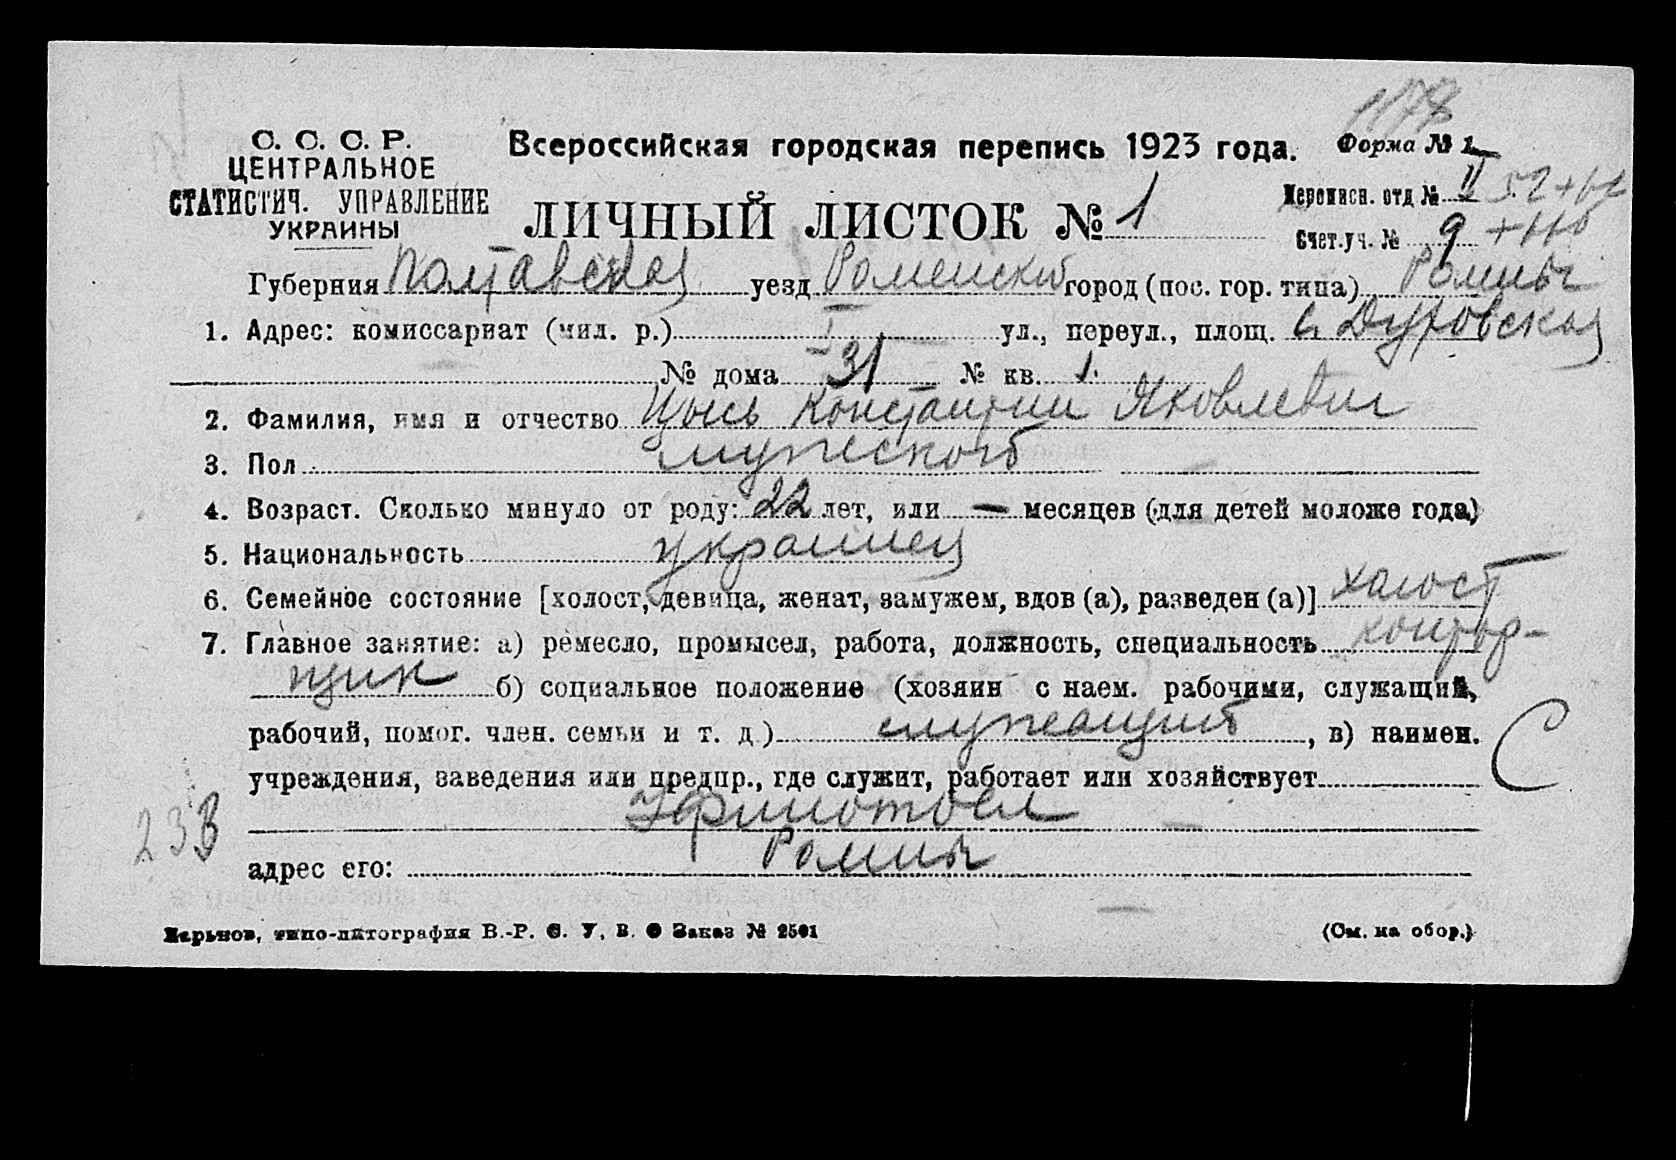 1178
С. С. С. Р.
ЦЕНТРАЛЬНОЕ
СТАТИСТИЧ. УПРАВЛЕНИЕ
УКРАИНЫ
Всероссийская городская перепись 1923 года.
Форма № 1
ЛИЧНЫЙ ЛИСТОК № 1
Переписн. отд № II
Счет.уч. № 9
Губерния Полтавская уезд Роменский город (пос. гор. типа) Ромны
1. Адрес: комиссариат (мил. р.) I ул., переул., площ.
№ дома 31 № кв. 1.
2. Фамилия, имя и отчество Цысь Константин Яковлевич
3. Пол мужской
4. Возраст. Сколько минуло от роду: 22 лет, или — месяцев (для детей моложе года)
5. Национальность украинец
6. Семейное состояние [холост, девица, женат, замужем, вдов (а), разведен (а)] холост
7. Главное занятие: а) ремесло, промысел, работа, должность, специальность контор-
щик б) социальное положение (хозяин с наем. рабочими, служащий,
рабочий, помог. член. семьи и т. д.) служащий, в) наимен.
С
учреждения, заведения или предпр., где служит, работает или хозяйствует
233
адрес его: Ромны
Харьков, типо-литография В.-Р. С. У. В. О Заказ № 2501
(См. на обор.)